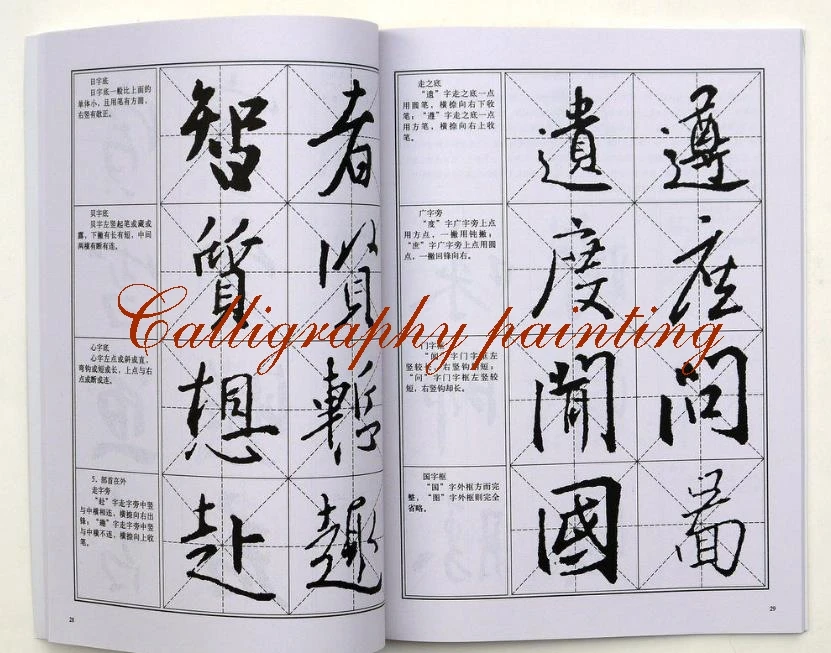 日字底
日字底一般比上面的
单体小，且用笔有方圆，
右竖有欹正。
智 者
贝字底
贝字左竖起笔或藏或
露，下撇有长有短，中间
两横有断有连。
質 賢
心字底
心字左点或斜或直，
弯钩或短或长，上点与右
点或断或连。
想
5．部首在外
走字旁
“赴”字走字旁中竖
与中横相连，横捺向右出
锋；“趣”走字旁中竖
与中横不连，横捺向上收
笔。
赴 趣
28
走之底
“遗”字走之底一点
用圆笔，横捺向右下收
笔；“遵”字走之底一点
用方笔，横捺向右上收
笔。
遺 遵
广字旁
“度”字广字旁上点
用方点，一撇用钝撇；
字广字旁上点用圆
点，一撇回锋向右。
度
Calligraphy painting
门字框
字门字框左
竖较长，右竖钩短；
“问”字门字框左竖较
短，右竖钩却长。
問
国字框
“国”字外框方而完
整，“图”字外框则完全
省略。
國 圖
29